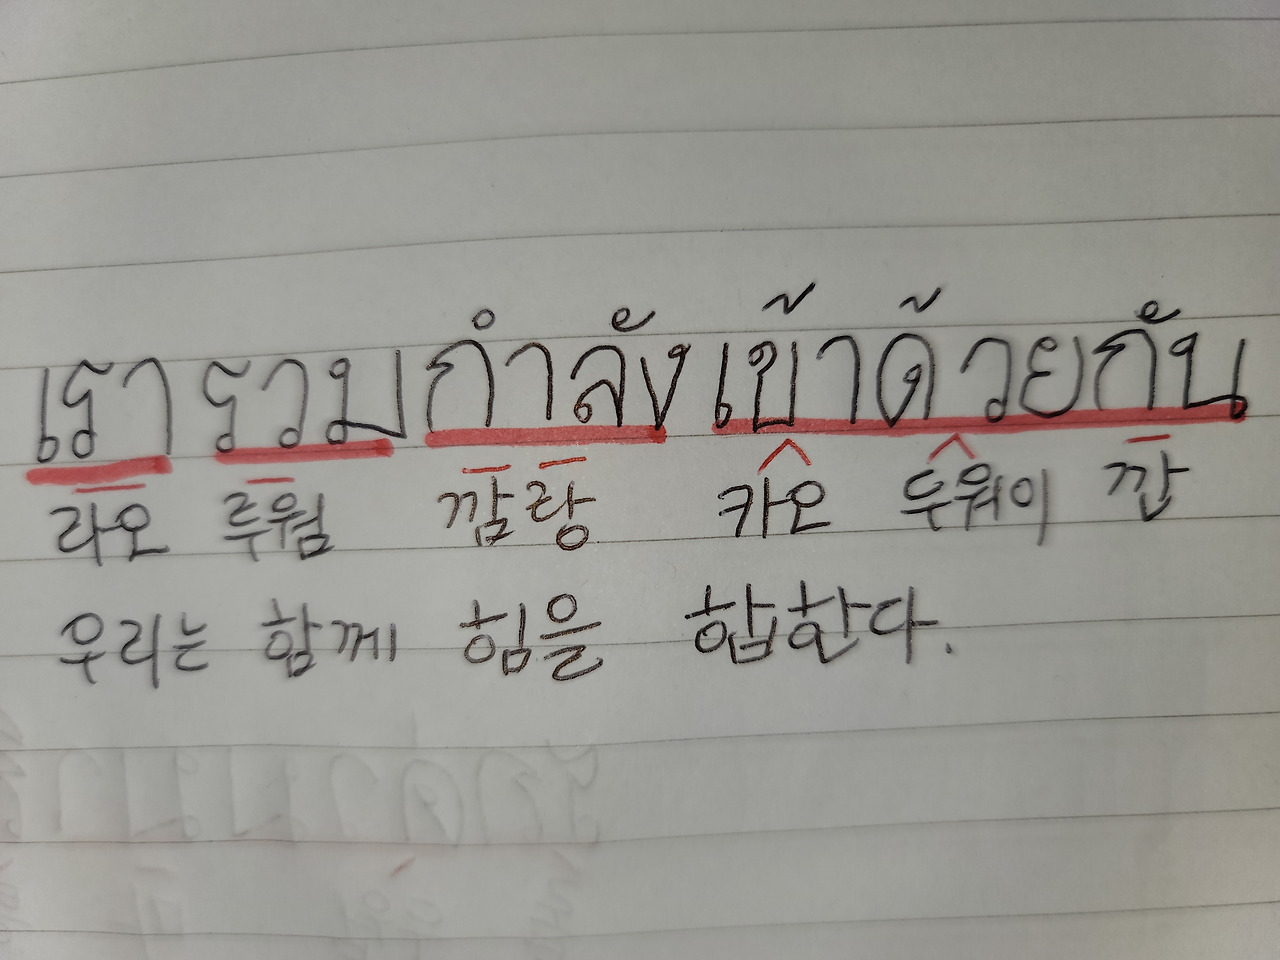 เรา รวม กำลัง เข้าด้วยกัน
라오 루웜 깜랑 카오 두워이 깐
우리는 함께 힘을 합한다.